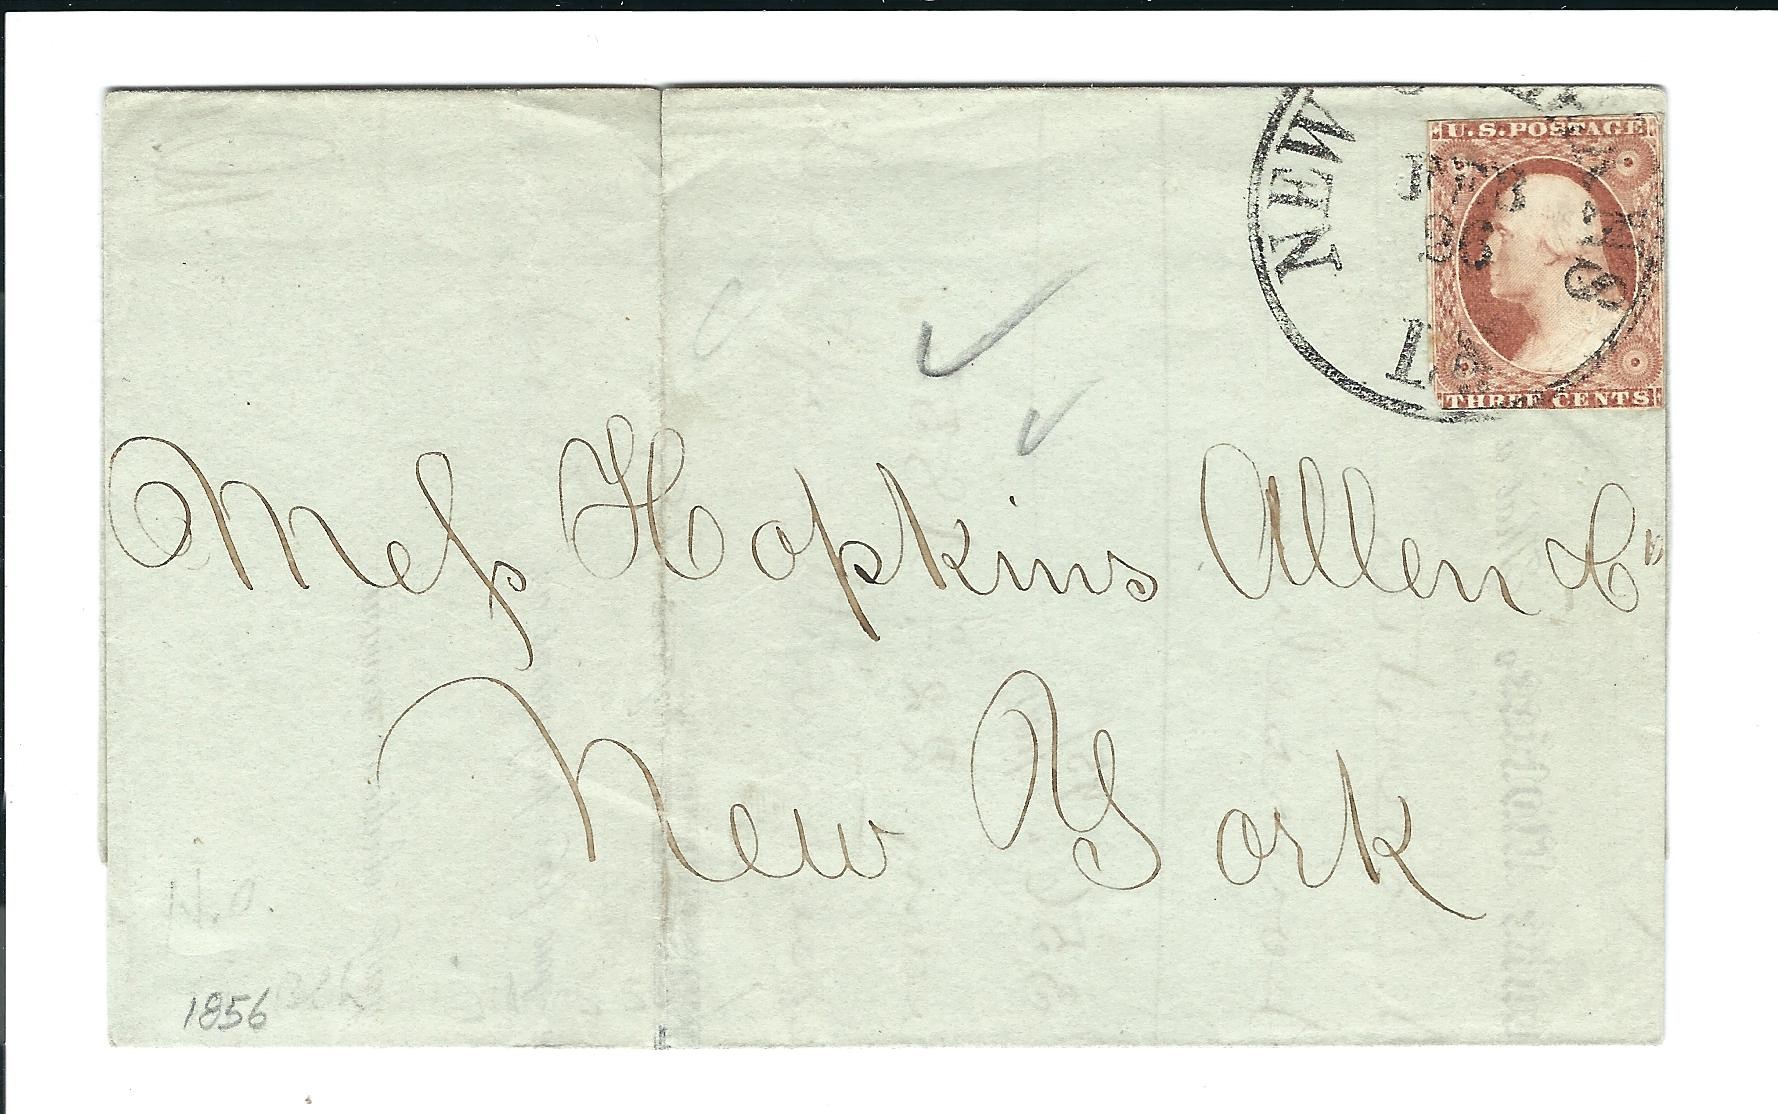 U.S.POSTAGE
THREE CENTS
NEW
Mess Hopkins Allen & Co
New York
1856